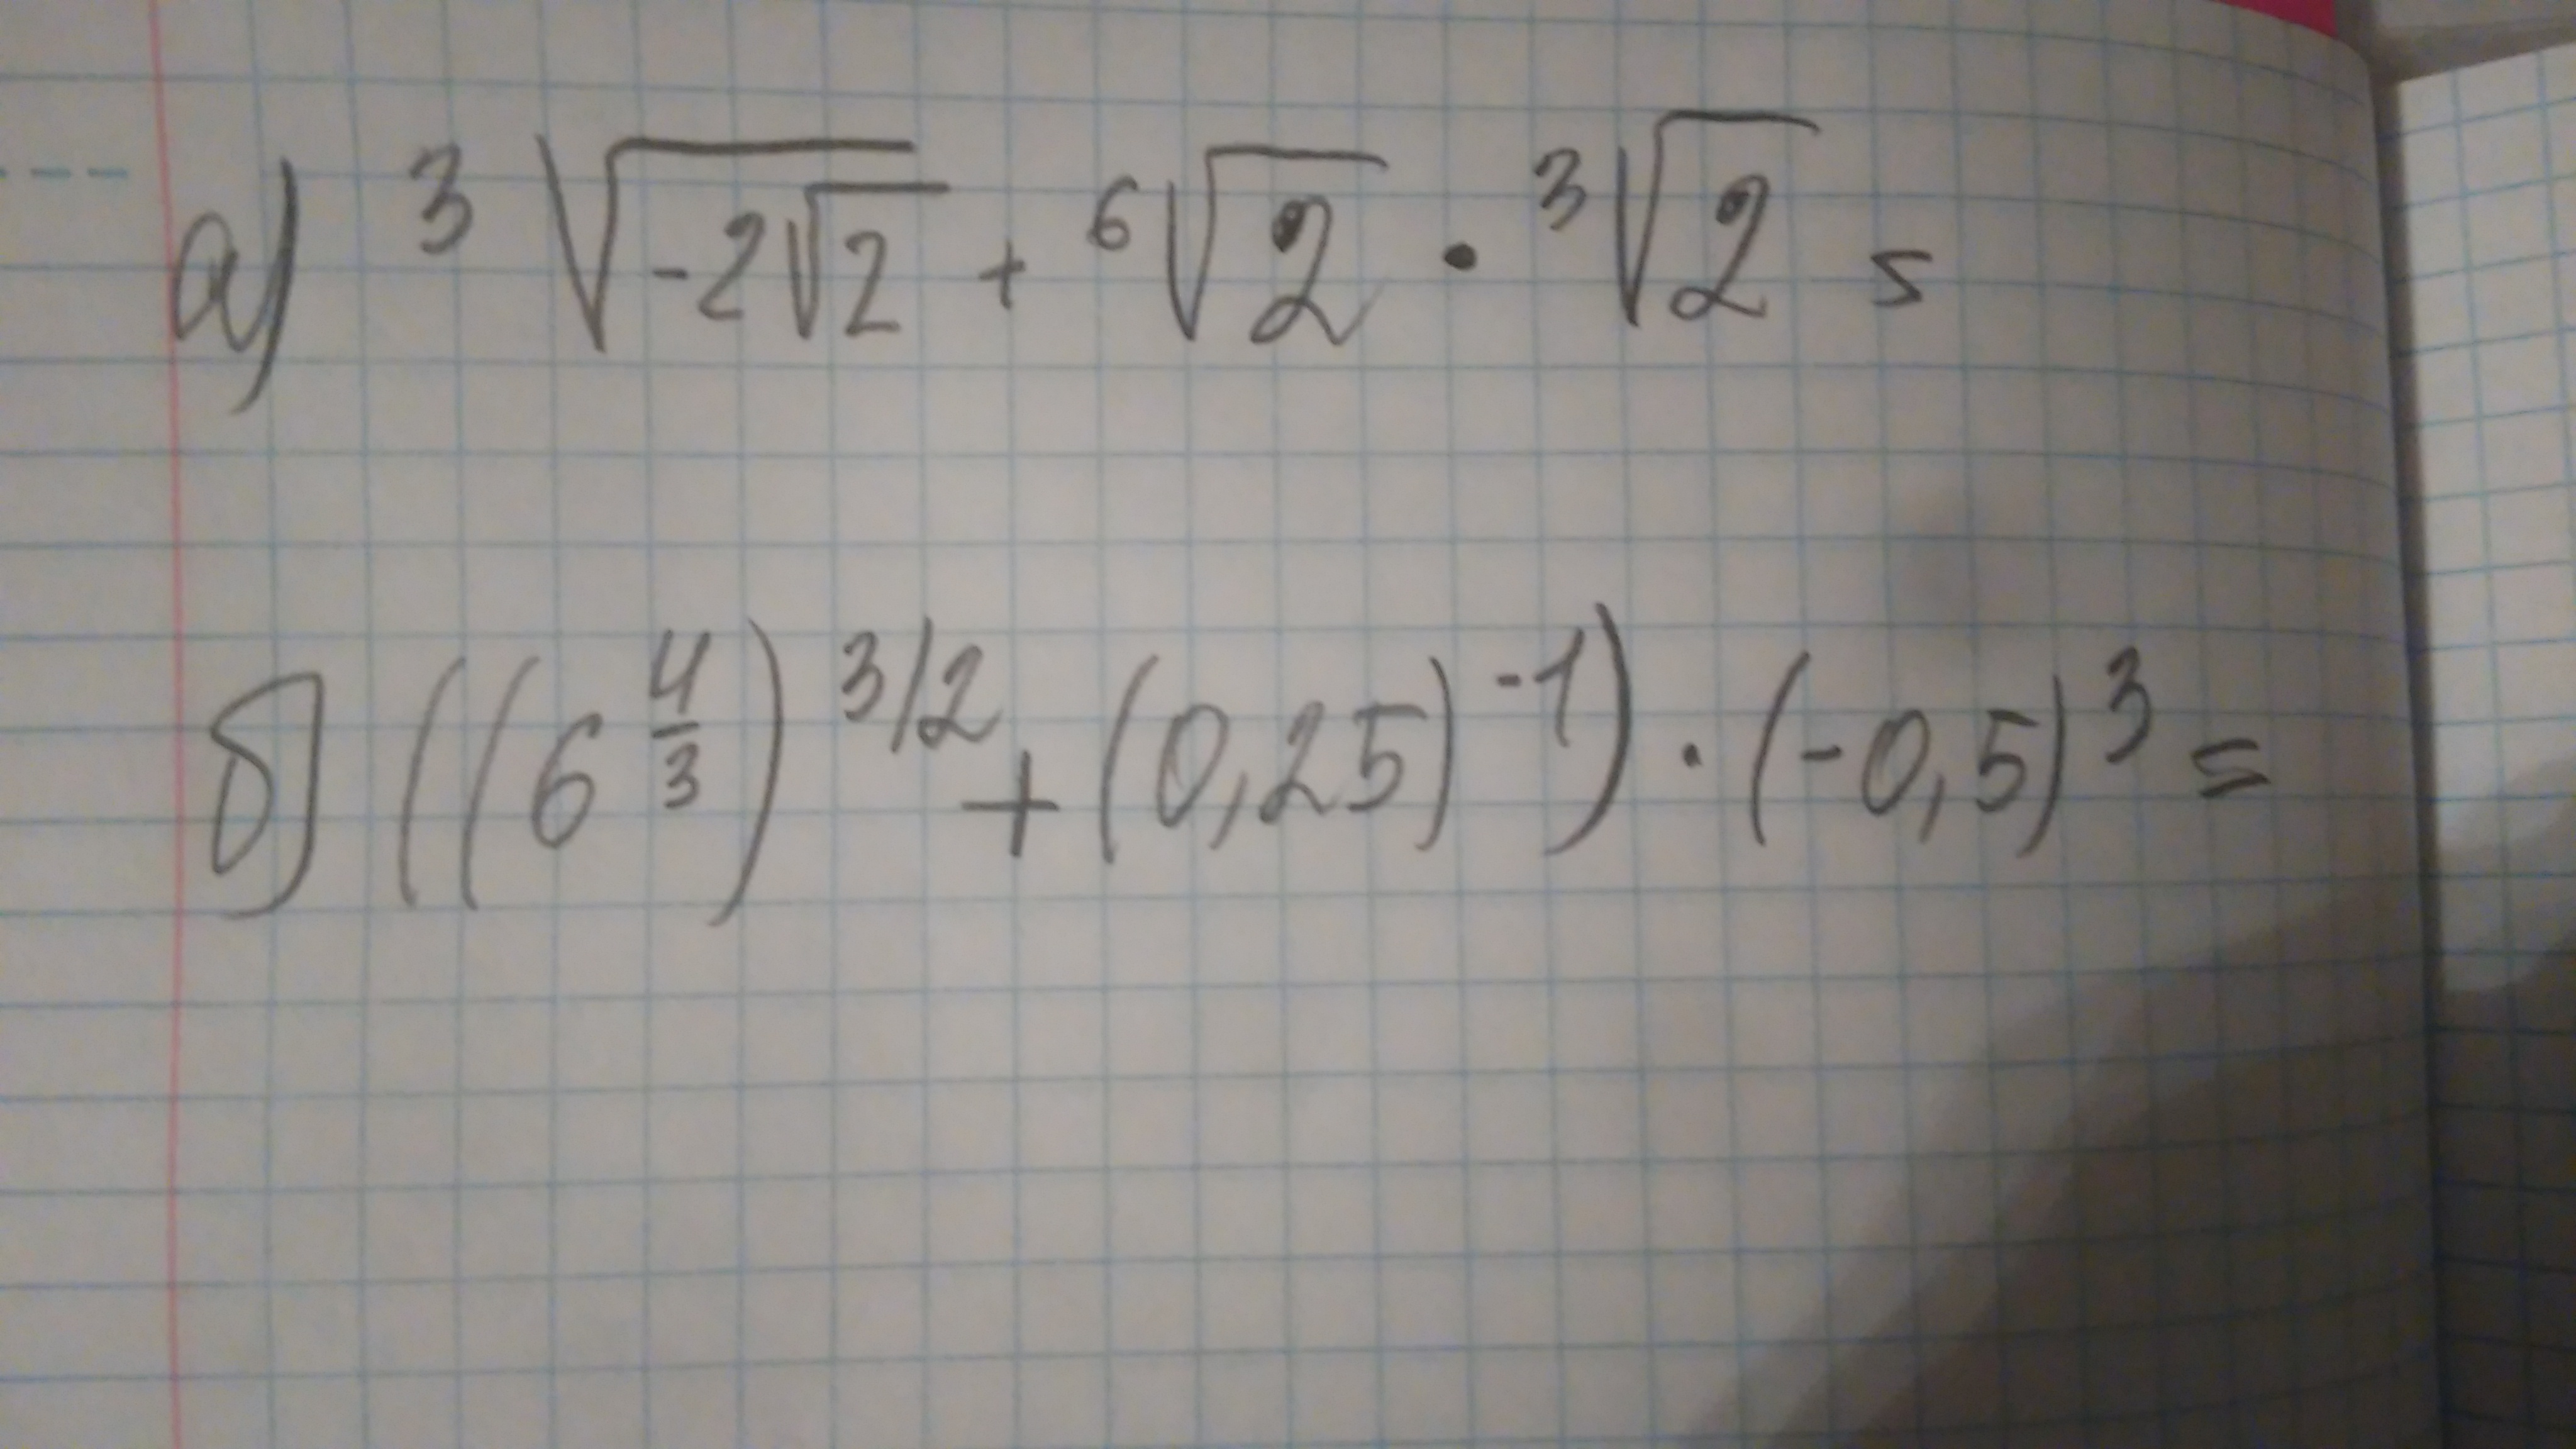 а) ³√(-2√2) + ⁶√2 · ³√2 =
б) ((6^(4/3))^(3/2) + (0,25)^(-1)) · (-0,5)^3 =